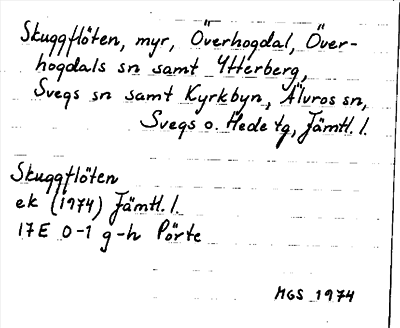 Skuggflöten, myr, Överhogdal, Över-
hogdals sn samt Ytterberg,
Svegs sn samt Kyrkbyn, Älvros sn,
Svegs o. Hede tg, Jämtl. l.
Skuggflöten
ek (1974) Jämtl. l.
17E 0-1 g-h Pörte
MGS 1974